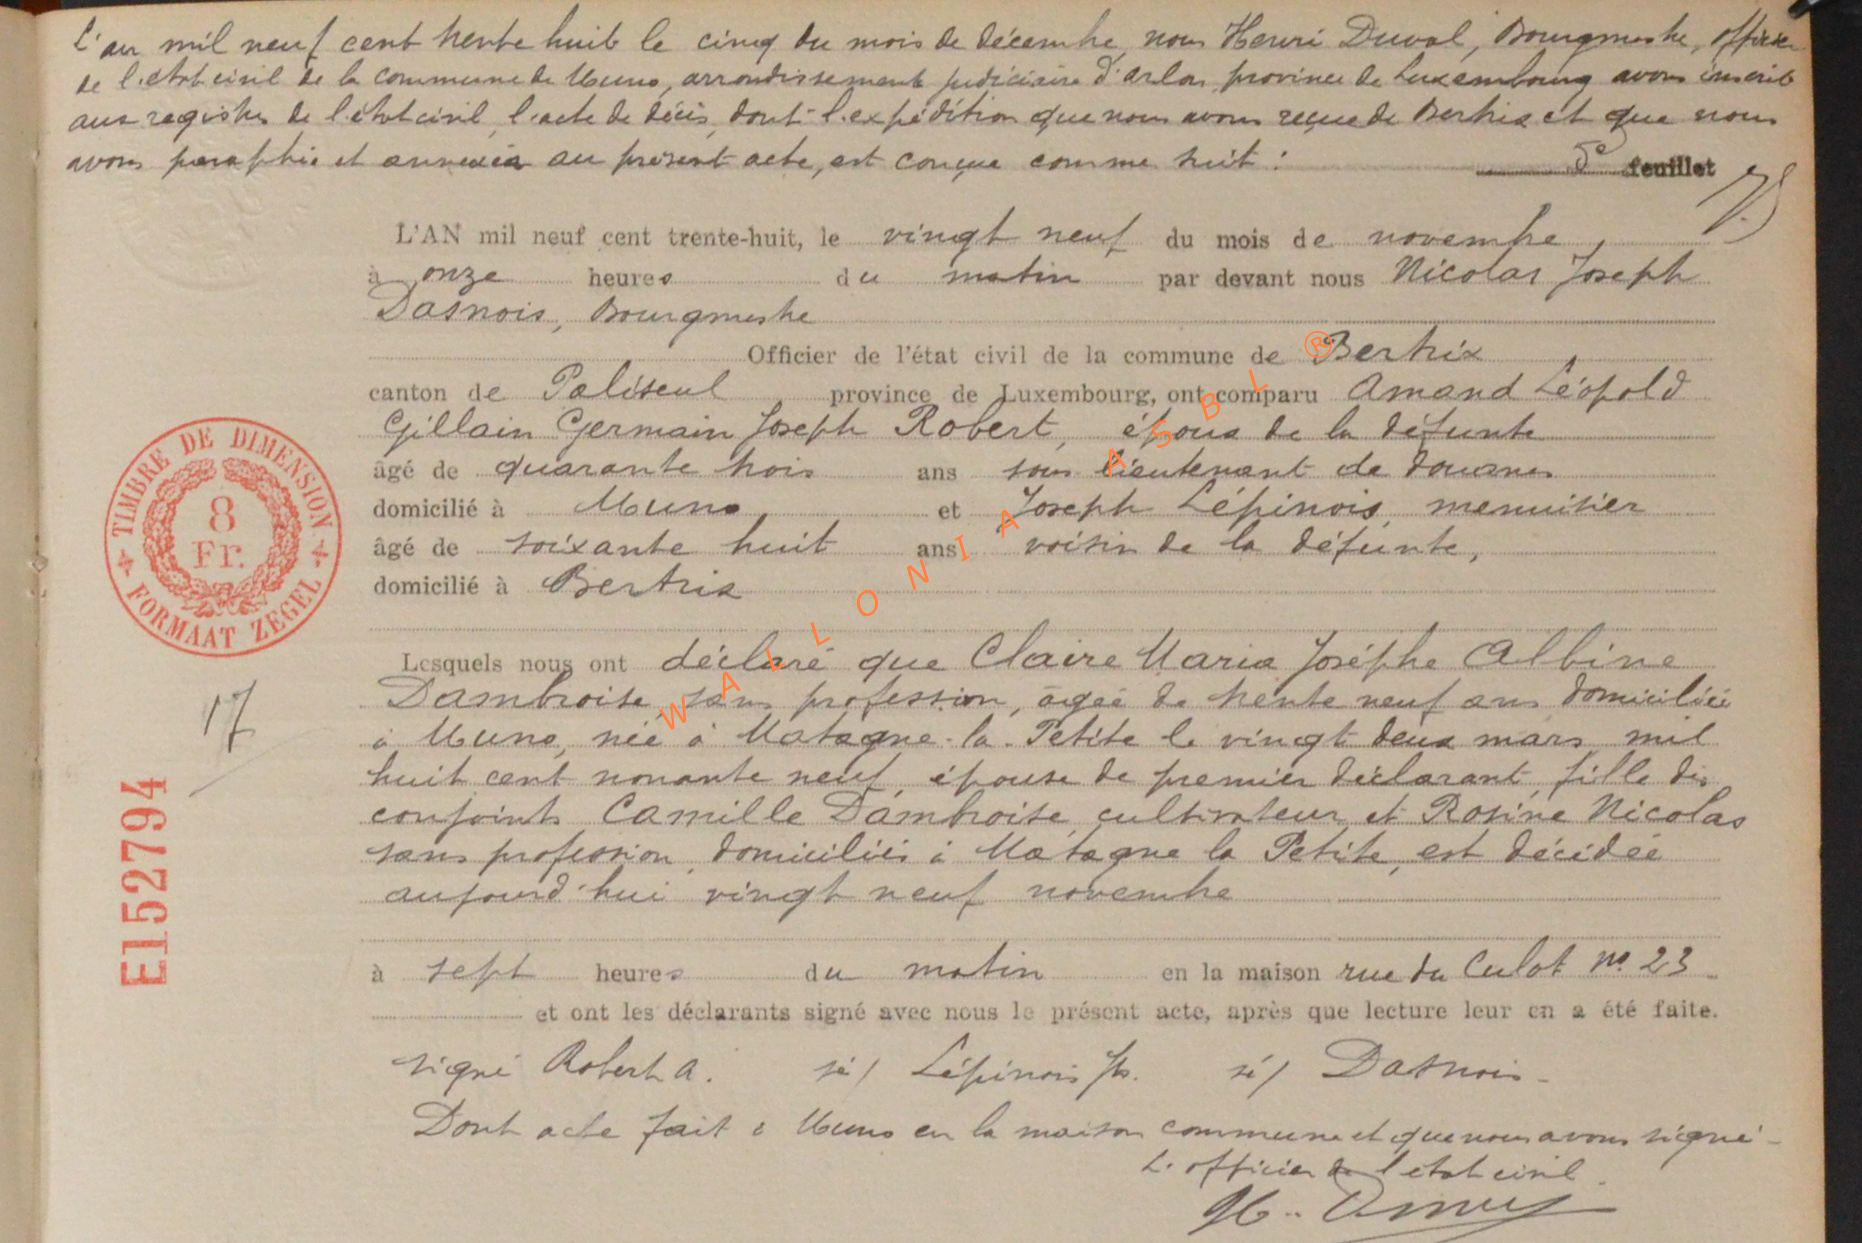 L'an mil neuf cent trente huit le cinq du mois de décembre, nous Henri Duval, Bourgmestre, officier
de l'état civil de la commune de Muno, arrondissement judiciaire d'Arlon, province de Luxembourg avons inscrit
aux registres de l'état civil, l'acte de décès, dont l'expédition que nous avons reçue de Bertrix et que nous
avons paraphée et annexée au présent acte, est conçue comme suit :
5e feuillet
L'AN mil neuf cent trente-huit, le vingt neuf du mois de novembre,
à onze heures du matin par devant nous Nicolas Joseph
Dasnois, Bourgmestre
Officier de l'état civil de la commune de Bertrix
canton de Paliseul, province de Luxembourg, ont comparu Amand Léopold
Gillain Germain Joseph Robert, époux de la défunte
âgé de quarante trois ans sous lieutenant de douanes
domicilié à Muno, et Joseph Lépinois, menuisier
âgé de soixante huit ans voisin de la défunte,
domicilié à Bertrix
Lesquels nous ont déclaré que Claire Maria Joséphe Albine
Dambroise, sans profession, âgée de trente neuf ans domiciliée
à Muno, née à Matagne-la-Petite le vingt deux mars mil
huit cent nonante neuf, épouse de premier déclarant, fille des
conjoints Camille Dambroise, cultivateur et Rosine Nicolas
sans profession, domiciliés à Matagne la Petite, est décédée
aujourd'hui vingt neuf novembre
à sept heures du matin en la maison rue du Culot no 23
et ont les déclarants signé avec nous le présent acte, après que lecture leur en a été faite.
signé Robert A. sé/ Lépinois Js. sé/ Dasnois-
Dont acte fait à Muno en la maison commune et que nous avons signé-
L'officier de l'état civil.
TIMBRE DE DIMENSION
8
Fr.
FORMAAT ZEGEL
17
E152794
WALLONIA ASBL ®